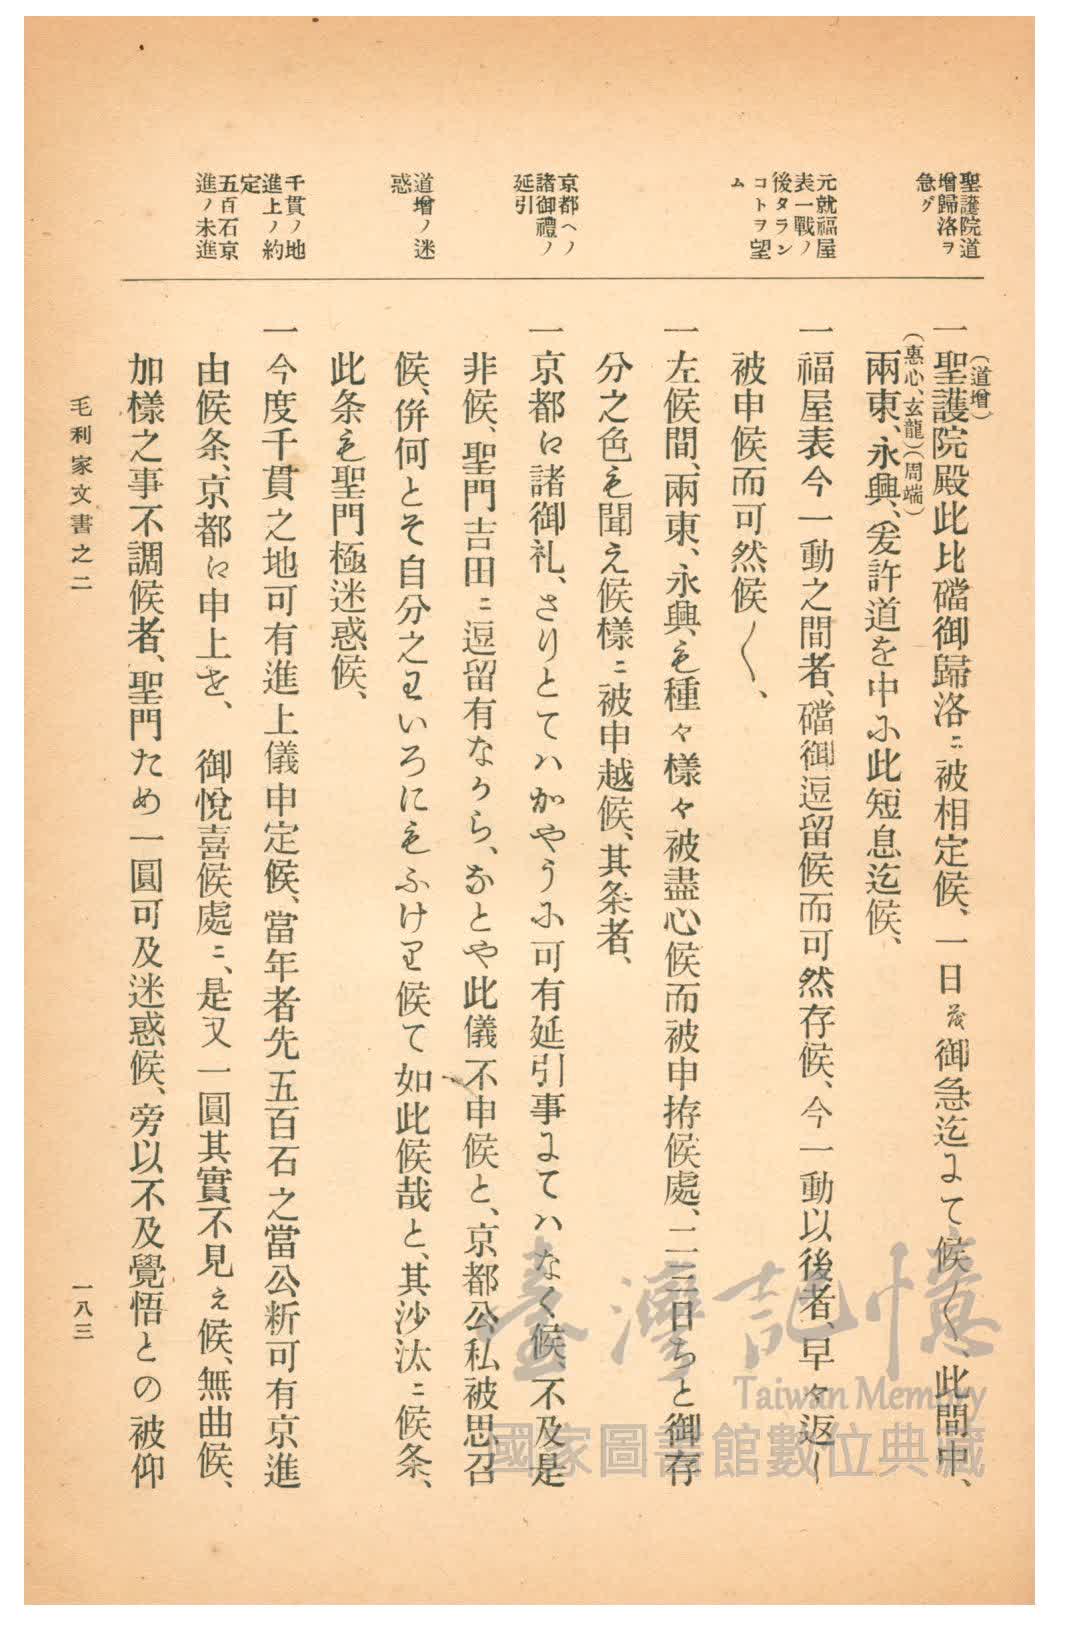 聖護院道
增歸洛ヲ
急グ
元就福屋
表一戰ノ
後タラン
コトヲ望
ム
京都ヘノ
諸御禮ノ
延引
道增ノ迷
惑
千貫ノ地
進上ノ約
定
五百石京
進ノ未進
(道增)
一聖護院殿此比礑御歸洛ニ被相定候、一日茂御急迄ニて候〱、此間中、
(惠心、玄龍)(周端)
兩東、永興、爰許道を中ニ此短息迄候、
一福屋表今一動之間者、礑御逗留候而可然存候、今一動以後者、早々返〱
被申候而可然候〱、
一左候間、兩東、永興も種々樣々被盡心候而被申拵候處、二三日ちと御存
分之色も聞え候樣ニ被申越候、其条者、
一京都江諸御礼、さりとてハかやうニ可有延引事ニてハなく候、不及是
非候、聖門吉田ニ逗留有なから、なとや此儀不申候と、京都公私被思召
候、併何とそ自分之わいろにもふけり候て如此候哉と、其沙汰ニ候条、
此条も聖門極迷惑候、
一今度千貫之地可有進上儀申定候、當年者先五百石之當公析可有京進
由候条、京都江申上を、 御悅喜候處ニ、是又一圓其實不見え候、無曲候、
加樣之事不調候者、聖門ため一圓可及迷惑候、旁以不及覺悟との被仰
毛利家文書之二
一八三
臺灣記憶
Taiwan Memory
國家圖書館數位典藏